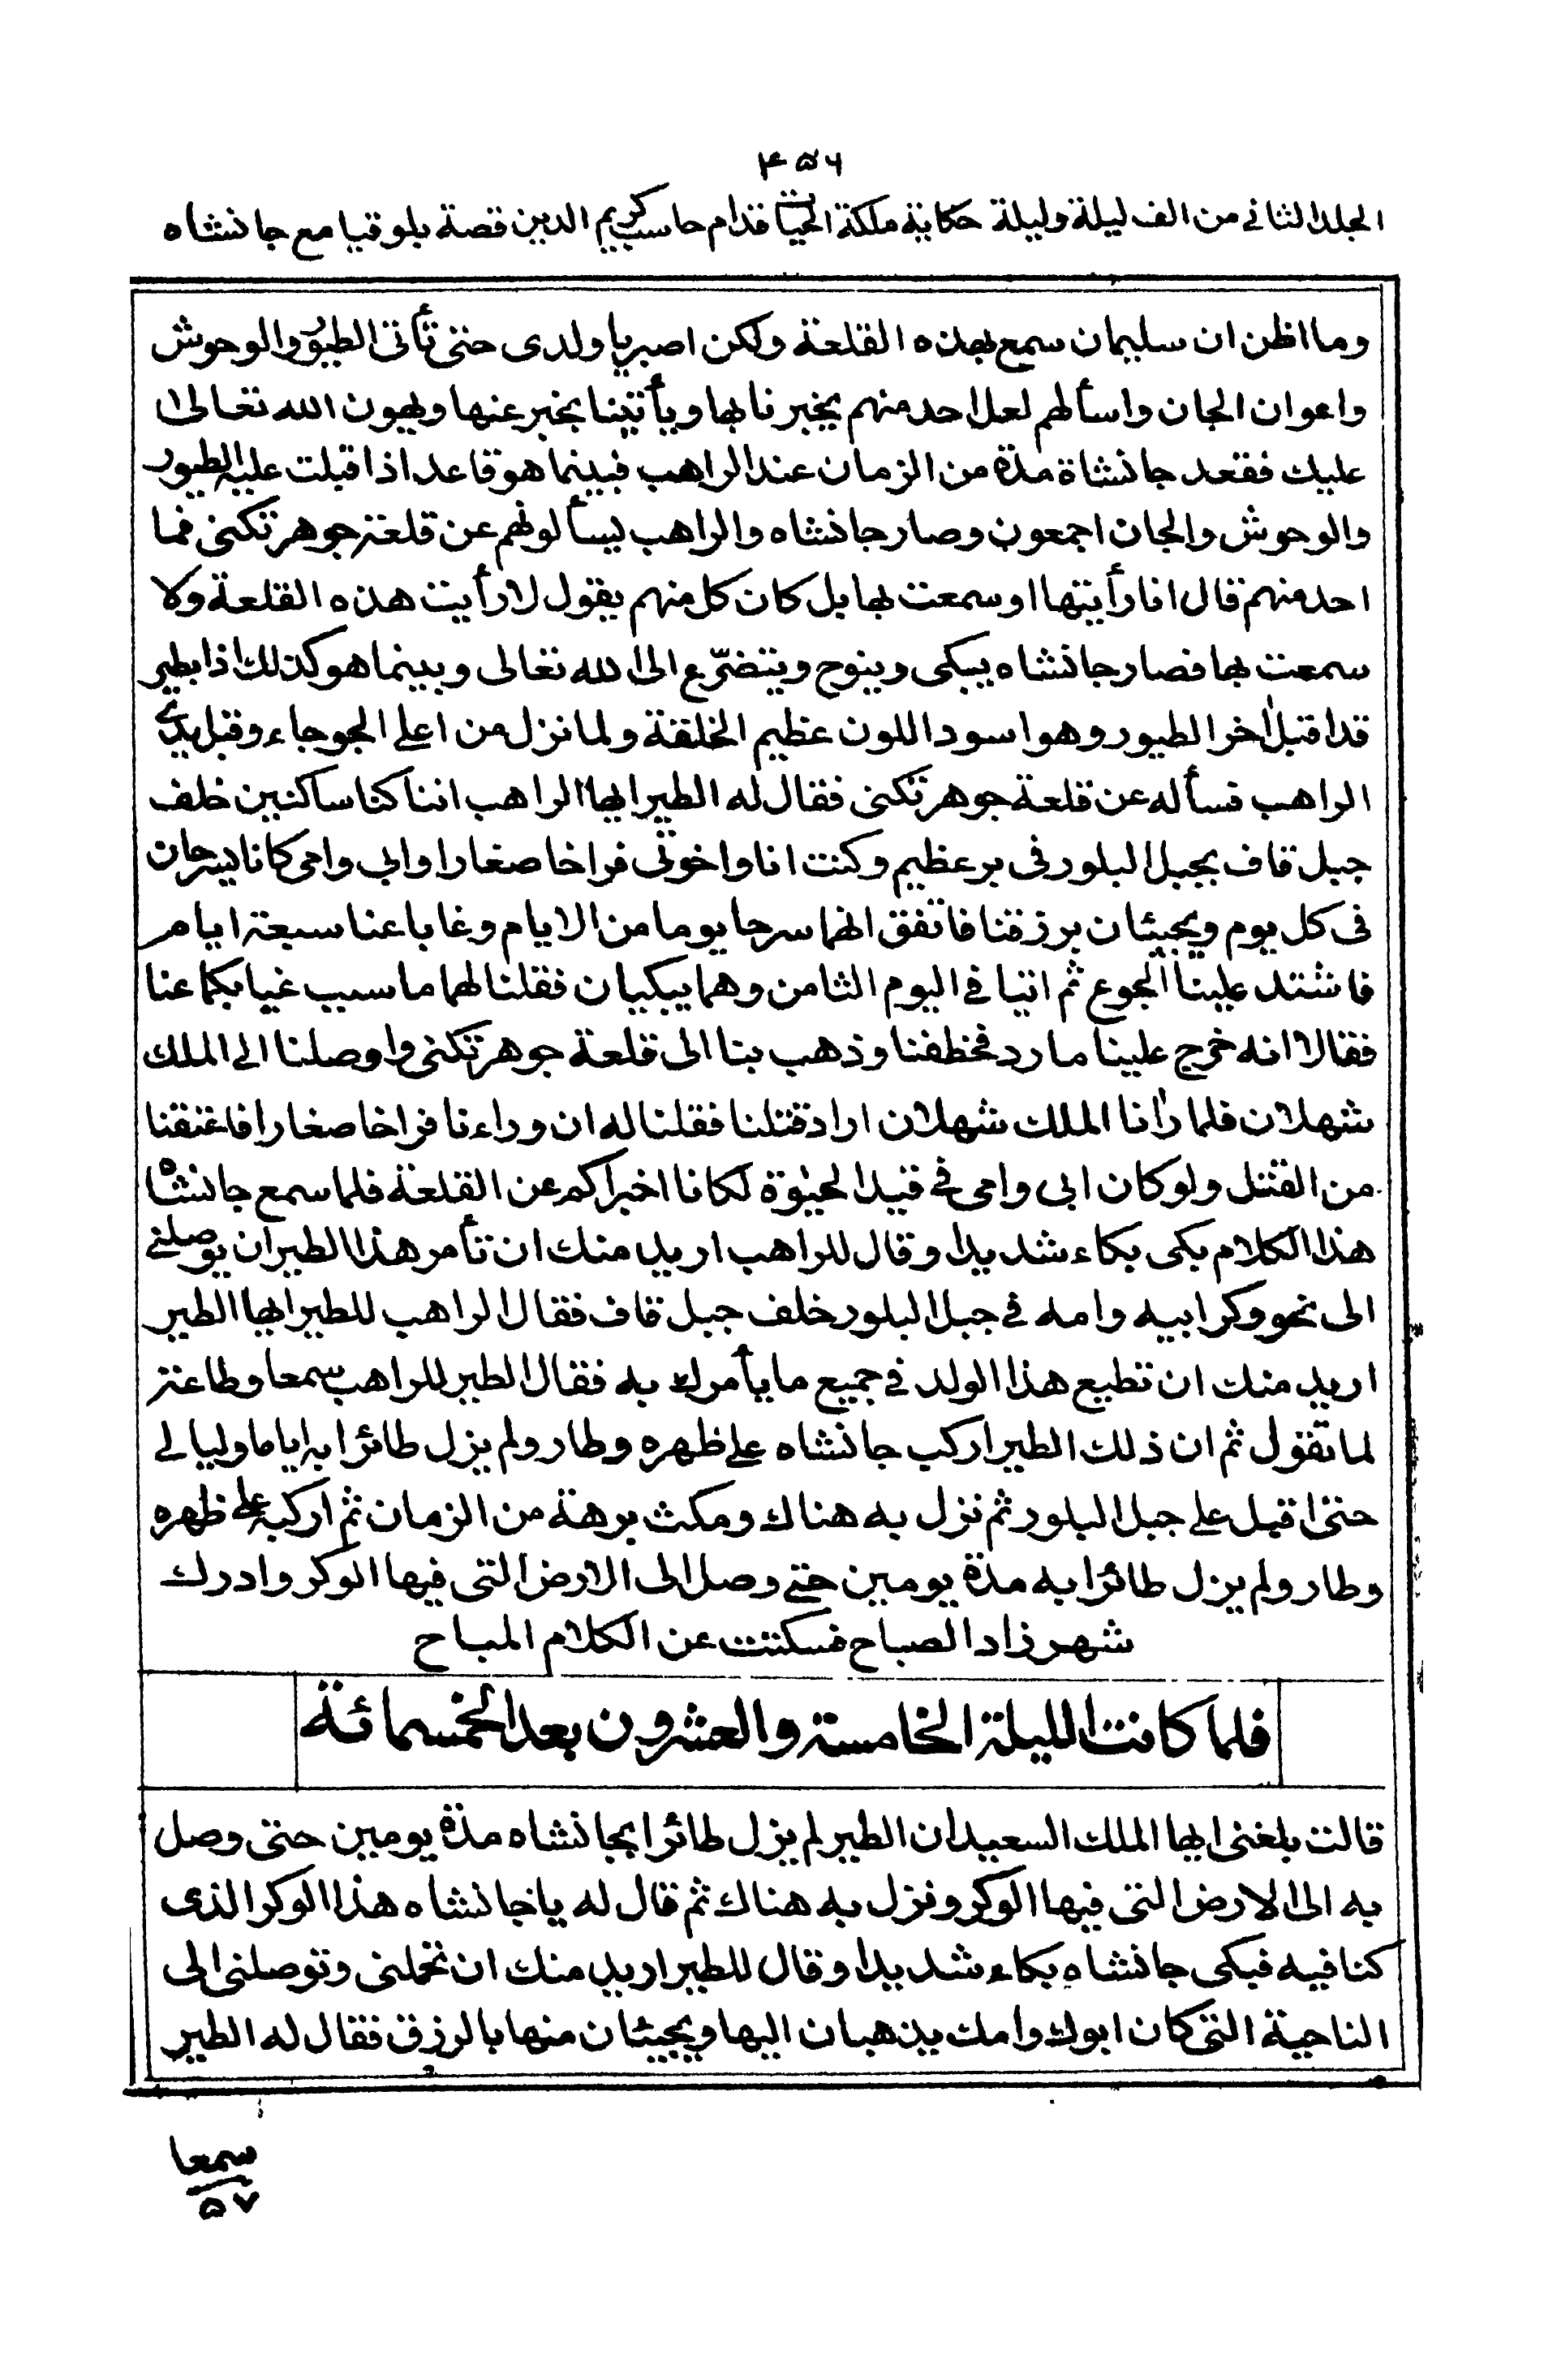 ۴۵۶
المجلد الثانے من الف ليلة وليلة حكاية ملكة الحيات قدام حاسب كريم الدين قصة بلوقيا مع جانشاه
وما اظن ان سليمان سمع بهذه القلعة ولكن اصبر يا ولدى حتى تأتى الطيور والوحوش
واعوان الجان واسألهم لعل احد منهم يخبرنا بها ويأتينا بخبر عنها ويهون الله تعالى
عليك فقعد جانشاة مدة من الزمان عند الراهب فبينما هو قاعد اذ اقبلت عليه الطيور
والوحوش والجان اجمعون وصار جانشاه والراهب يسألونهم عن قلعة جوهر تكنى فما
احد منهم قال انا رأيتها او سمعت بها بل كان كل منهم يقول لا رأيت هذه القلعة ولا
سمعت بها فصار جانشاه يبكى وينوح ويتضرّع الى الله تعالى وبينما هو كذلك اذا بطير
قد اقبل اٰخر الطيور وهو اسود اللون عظيم الخلقة ولما نزل من اعلے الجو جاء وقبل يدے
الراهب فسأله عن قلعة جوهر تكنى فقال له الطير ايها الراهب اننا كنا ساكنين خلف
جبل قاف بجبل البلور فى بر عظيم وكنت انا واخوتى فراخا صغارا وابى وامى كانا يسرحان
فى كل يوم ويجيئان برزقنا فاتفق انهما سرحا يوما من الايام وغابا عنا سبعة ايام
فاشتد علينا الجوع ثم اتيا فے اليوم الثامن وهما يبكيان فقلنا لهما ما سبب غيابكما عنا
فقالا انه خرج علينا مارد فخطفنا وذهب بنا الى قلعة جوهر تكنى واوصلنا الے الملك
شهلان فلما راٰنا الملك شهلان اراد قتلنا فقلنا له ان وراءنا فراخا صغارا فاعتقنا
من القتل ولو كان ابى وامى فے قيد الحيٰوة لكانا اخبراكم عن القلعة فلما سمع جانشاه
هذا الكلام بكى بكاء شديدا وقال للراهب اريد منك ان تأمر هذا الطير ان يوصلنے
الى نحو وكر ابيه وامه فے جبل البلور خلف جبل قاف فقال الراهب للطير ايها الطير
اريد منك ان تطيع هذا الولد فے جميع ما يأمرك به فقال الطير للراهب سمعا وطاعة
لما تقول ثم ان ذلك الطير اركب جانشاه علے ظهره وطار ولم يزل طائرا به اياما وليالے
حتى اقبل علے جبل البلور ثم نزل به هناك ومكث برهة من الزمان ثم اركبه علے ظهره
وطار ولم يزل طائرا به مدة يومين حتے وصل الى الارض التى فيها الوكر وادرك
شهرزاد الصباح فسكتت عن الكلام المباح
فلما كانت الليلة الخامسة والعشرون بعد الخمسمائة
قالت بلغنى ايها الملك السعيد ان الطير لم يزل طائرا بجانشاه مدة يومين حتى وصل
به الى الارض التى فيها الوكر ونزل به هناك ثم قال له يا جانشاه هذا الوكر الذى
كنا فيه فبكى جانشاه بكاء شديدا وقال للطير اريد منك ان تحملنى وتوصلنى الى
الناحية التى كان ابوك وامك يذهبان اليها ويجيئان منها بالرزق فقال له الطير
سمعا
۵۷